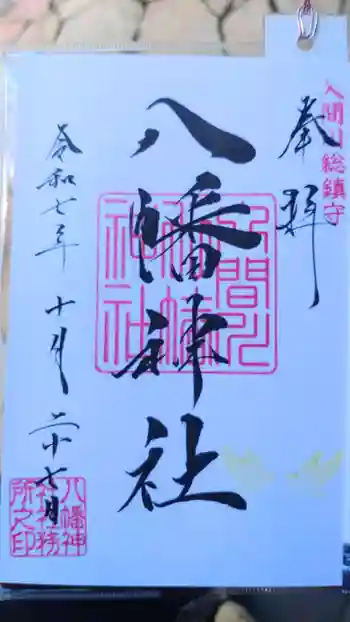 入間川総鎮守
奉拝
八幡神社
入間川
八幡神社
令和七年十月二十七日
八幡神
社社務
所之印